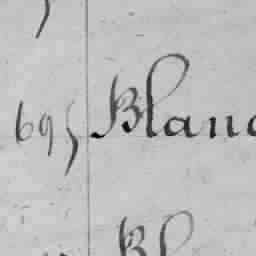 695 Blanc
Bl